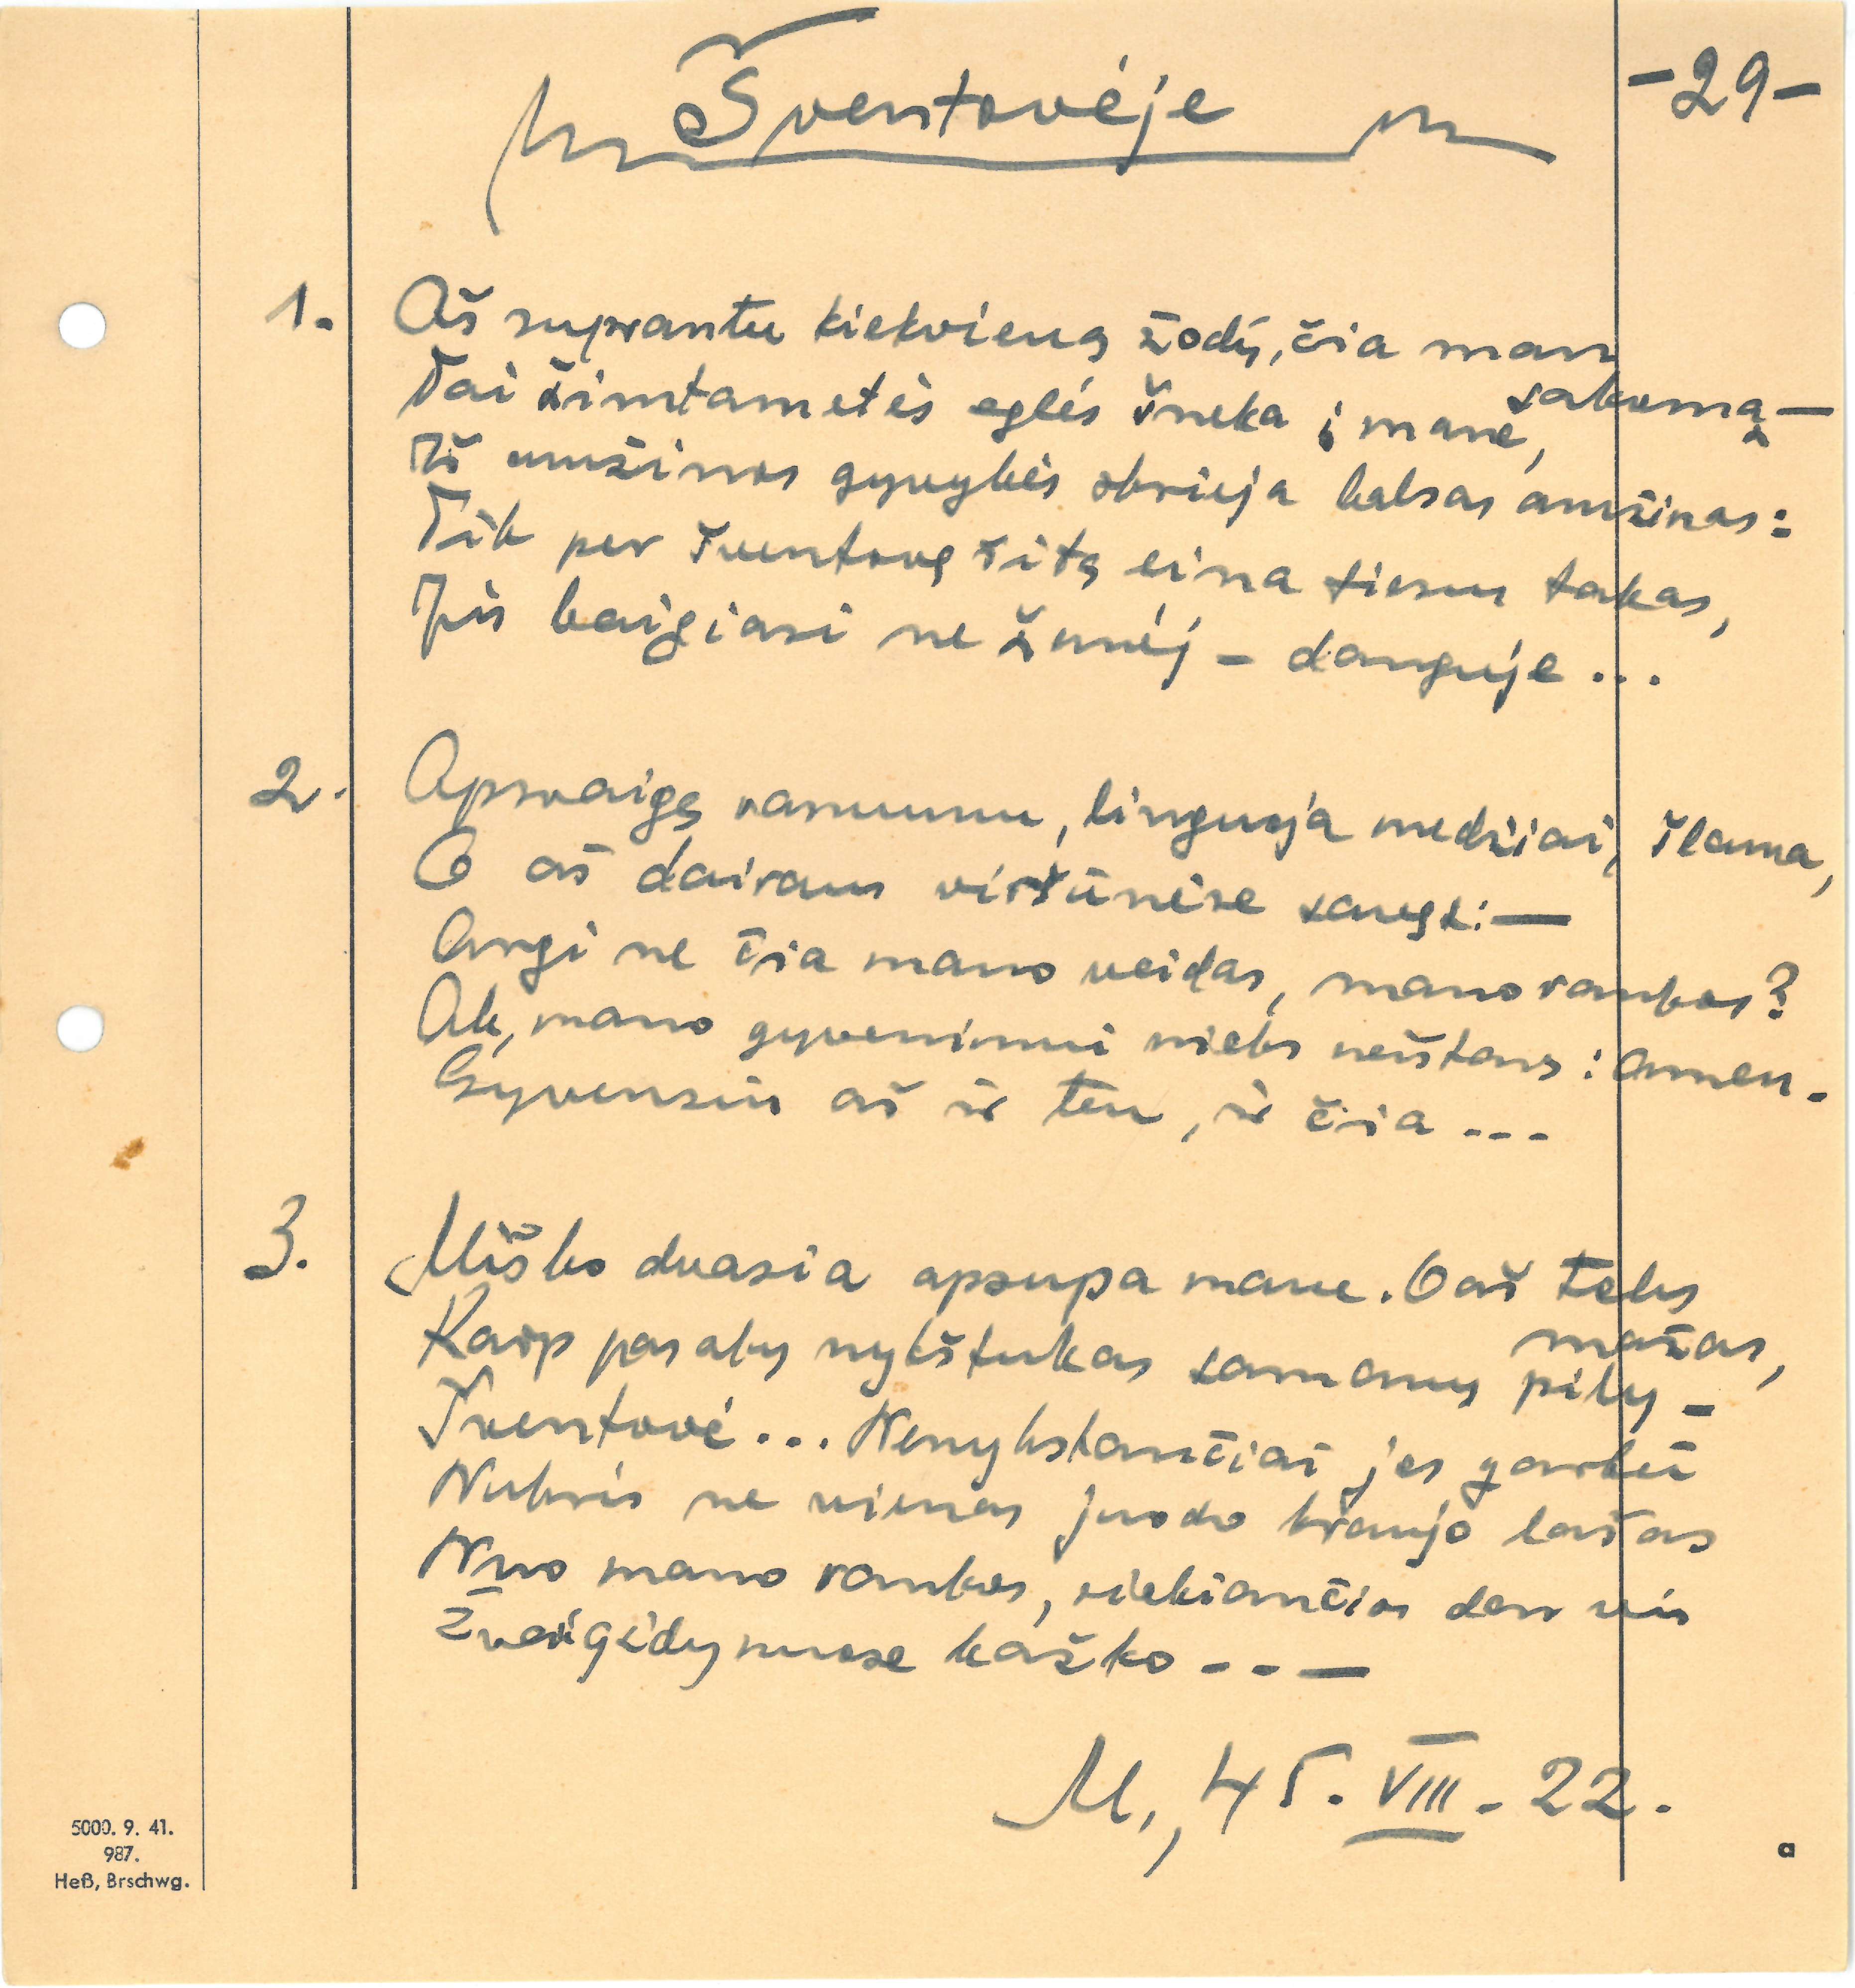 -29-
Šventovėje
1. Aš suprantu kiekvieną žodį, čia man
sakomą—
Tai šimtametės eglės šneka į mane,
Iš amžinos gyvybės skrieja balsas amžinas:
Tik per šventovę šitą eina tiesus takas,
Jis baigiasi ne žemėj - danguje...
2. Apsvaigę ramumu, linguoja medžiai, šlama,
O aš dairaus viršūnėse savęs: —
Argi ne čia mano veidas, mano rankos?
Ak, mano gyvenimui nieks neištars: amen.
Gyvensiu aš ir ten, ir čia ...
3. Miško dvasia apsupa mane. O aš toks
mažas,
Kaip pasakų nykštukas samanų pily -
Šventovė... Nenykstančiai jos garbei
Nukris ne vienas juodo kraujo lašas
Nuo mano rankos, siekiančios dar vis
Žvaigždynuose kažko - - —
M., 45. VIII. 22.
5000. 9. 41.
987.
Heß, Brschwg.
a